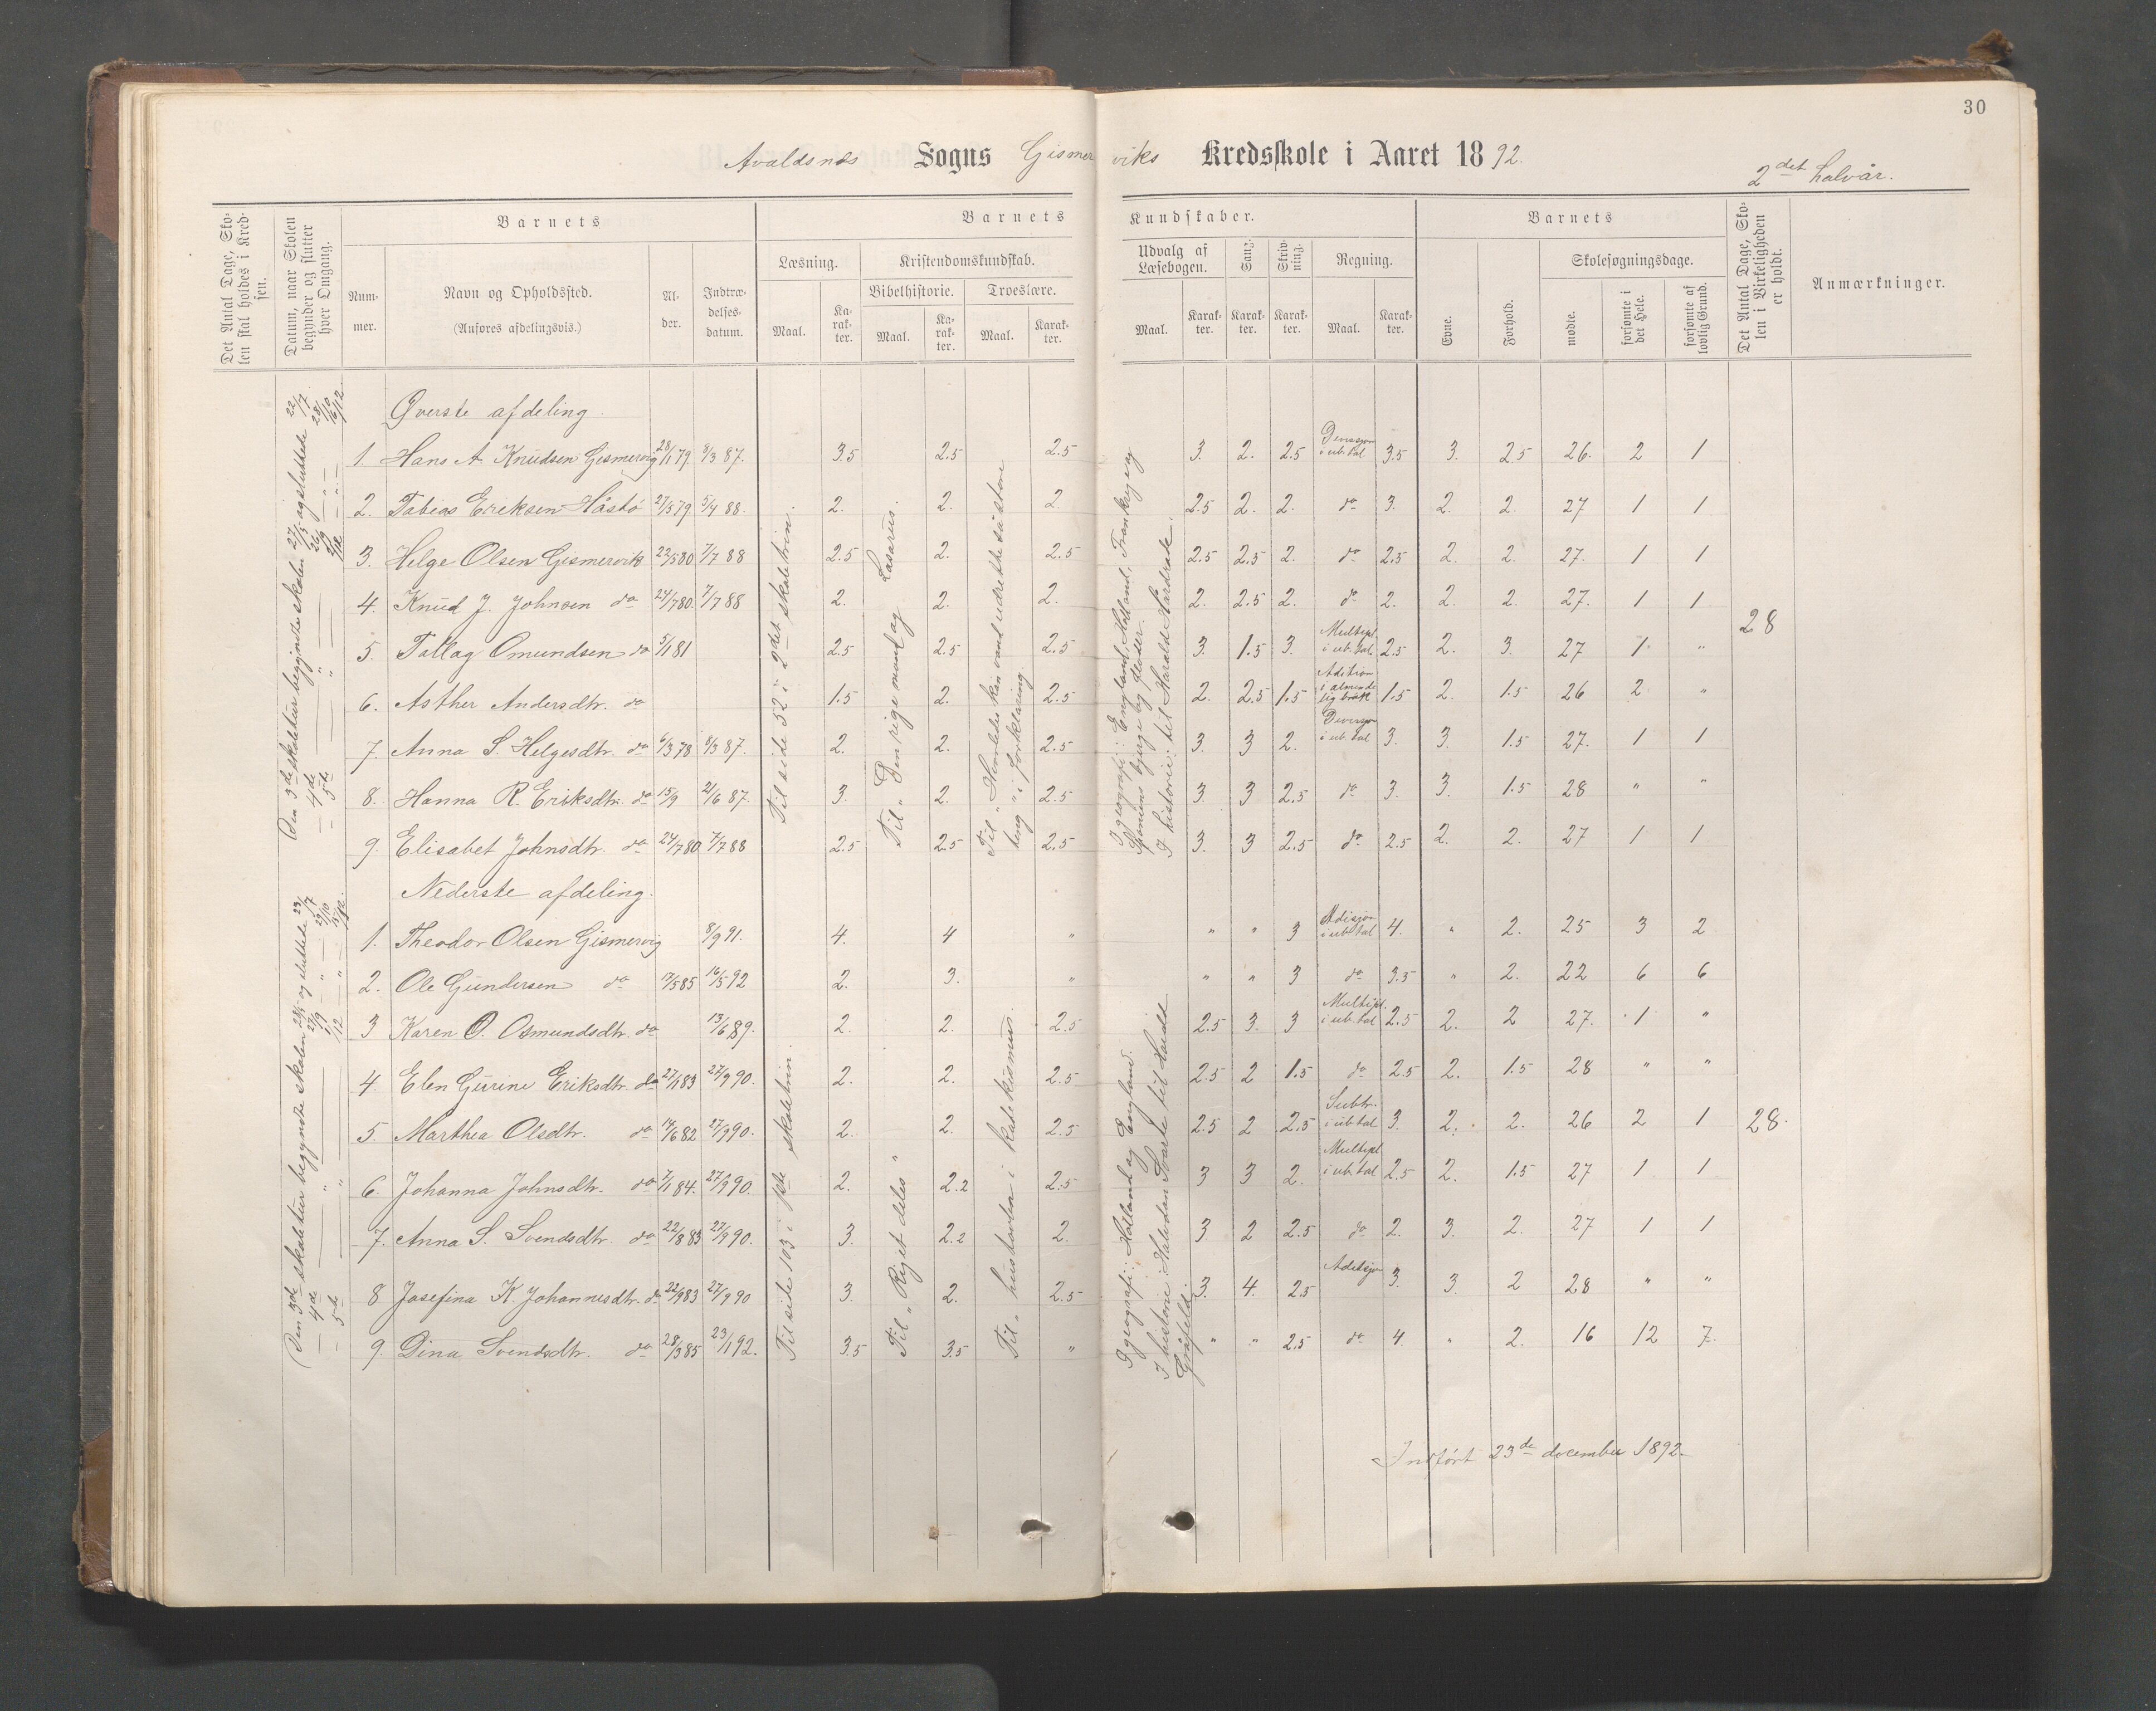 30
Avaldsnes Sogns Gismerviks Kredsskole i Aaret 1892.
2det halvår.
Det Antal Dage, Skolen skal holdes i Kredsen.
Datum, naar Skolen begynder og slutter hver Omgang.
Barnets
Nummer.
Navn og Opholdssted.
(Anføres afdelingsvis.)
Alder.
Indtrædelsesdatum.
Barnets Kundskaber.
Læsning.
Maal.
Karakter.
Kristendomskundskab.
Bibelhistorie.
Maal.
Karakter.
Troeslære.
Maal.
Karakter.
Udvalg af Læsebogen.
Maal.
Karakter.
Sang.
Karakter.
Skrivning.
Karakter.
Regning.
Maal.
Karakter.
Barnets
Evne.
Forhold.
Skolesøgningsdage.
mødte.
forsømte i det Hele.
forsømte af lovlig Grund.
Det Antal Dage, Skolen i Virkeligheden er holdt.
Anmærkninger.
Den 3de skoletur begyndte skolen 27/5 og sluttede 22/7
— 4de — " — 26/9 — " — 28/10
— 5de — " — 2/12 — " — 16/12
Øverste afdeling
Til side 52 i 2det skoletrin.
Til "Den rige mand og Lasarus.
Til "Hvorledes kan vand udrette så store ting" i forklaring
I geografi: England, Holland, Frankrig og Spaniens bjerge og floder.
I historie: til Harald Hårdråde.
1. Hans A. Knudsen Gismervig 28/1 79. 8/3 87. 3.5 2.5 2.5 3. 2. 2.5 Devisjon i ub. tal 3.5 3. 2.5 26. 2 1
2. Tobias Eriksen Håstø 27/5 79. 5/4 88. 2. 2. 2. 2.5 2. 2. do 3. 2. 2. 27 1 1
3. Helge Olsen Gismervik 22/5 80 7/7 88 2.5 2. 2.5 2.5 2.5 2. do 2.5 2. 2. 27. 1 1
4. Knud J. Johnsen do 24/7 80. 7/7 88 2. 2. 2. 2. 2.5 2. do 2. 2. 2. 27. 1 1
28
5. Tollag Omundsen do 5/1 81 2.5 2.5 2.5 3. 1.5 3. Multipl. i ub. tal 2.5 2. 3. 27 1 "
6. Asther Andersdtr. do 1.5 2. 2.5 2. 2.5 1.5 Adition i almindelig brøk 1.5 2. 1.5 26 2 "
7. Anna S. Helgesdtr. do 6/3 78 8/3 87. 2. 2. 2.5 3. 3 2. Devisjon i ub. tal 3. 3. 1.5 27. 1 1
8. Hanna R. Eriksdtr. do 15/9 21/6 87. 3. 2. 2.5 3. 3 2.5 do 3. 3. 1.5 28 " "
9. Elisabet Johnsdtr. do 24/7 80 7/7 88 2.5 2.5 2.5 3. 3 2.5 do 2.5 2. 2. 27 1 1
Den 3de skoletur begyndte skolen 28/5 og sluttede 23/7
— 4de — " — 27/9 — " — 29/10
— 5de — " — 1/12 — " — 15/12.
Nederste afdeling.
Til side 103 i 1ste skoletrin.
Til "Riget deles"
Til "hustavlen i katekismus.
I geografi: Holland og England.
I historie: Halvdan Svarte til Harald Gråfeld.
1. Theodor Olsen Gismervig 8/9 91. 4. 4 " " " 3 Adisjon i ub. tal 4. " 2. 25 3 2
2. Ole Gundersen do 17/5 85 16/5 92 2. 3. " " " 3 do 3.5 " 2. 22 6 6
3 Karen O. Osmundsdtr. do 13/6 89. 2. 2. 2.5 2.5 3. 3 Multipl. i ub. tal 2.5 2. 2 27. 1 "
4. Elen Gurine Eriksdtr. do 27/1 83 27/9 90. 2. 2. 2.5 2.5 2 1.5 do 2.5 2. 1.5 28 " "
5. Marthea Olsdtr. do 14/6 82 27/9 90. 2. 2. 2.5 2.5 2 2.5 Subtr. i ub. tal 3. 2. 2. 26 2 1 28.
6. Johanna Johnsdtr. do 7/1 84. 27/9 90. 2. 2.2 2.5 3 3 2. Multipl i ub. tal 2.5 2. 1.5 27 1 1
7. Anna S. Svendsdtr. do 22/8 83 27/9 90. 3. 2.2 2. 3. 2 2.5 do 2. 3. 2. 27 1 1
8 Josefina K. Johannesdtr. do 22/9 83 27/9 90 3. 2. 2.5 3. 4. 2.5 Adetsjon 3. 3. 2 28 " "
9. Dina Svendsdtr. do 28/3 85 23/1 92. 3.5 3.5 " " " 2.5 do 4. " 2. 16 12 7.
Indført 23de december 1892.